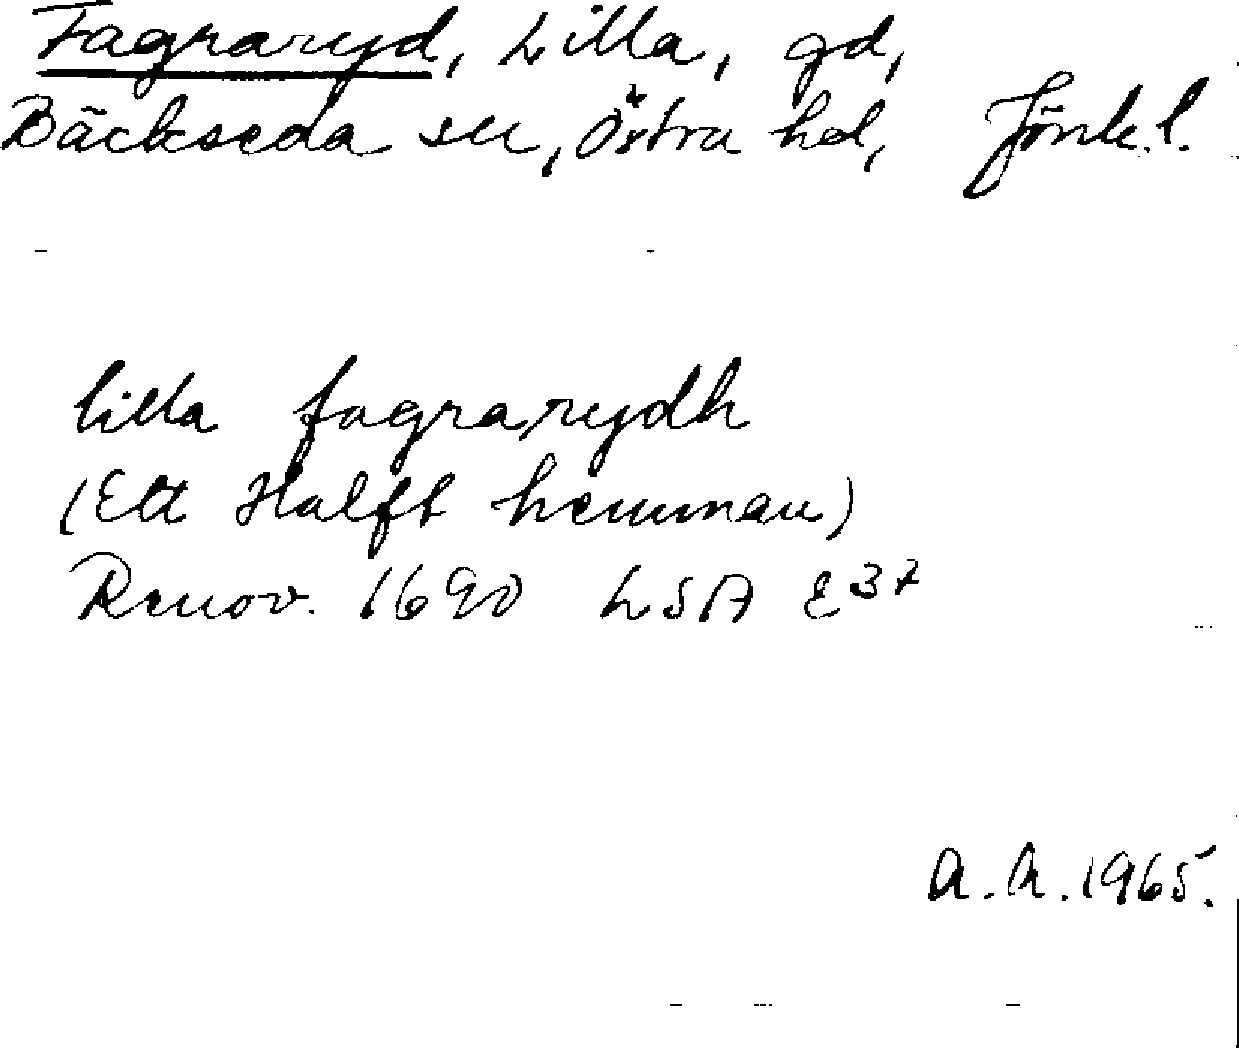 Fagraryd, Lilla, gd,
Bäckseda sn, Östra hd, Jönk.l.
lilla fagrarydh
(Ett Halft hemman)
Renov. 1690 LSA E37
A.A. 1965.